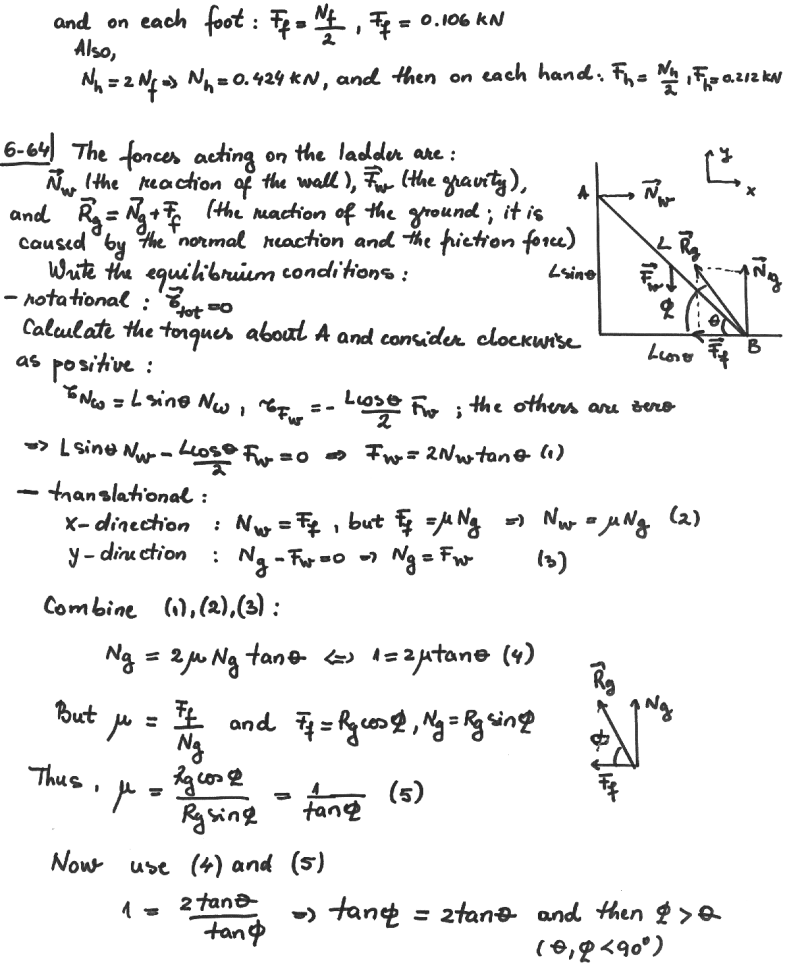 and on each foot : F_f = N_f/2 , F_f = 0.106 kN
Also,
N_h = 2 N_f => N_h = 0.424 kN, and then on each hand : F_h = N_h/2 , F_h = 0.212 kN
6-64| The forces acting on the ladder are :
N⃗_w (the reaction of the wall), F⃗_w (the gravity),
and R⃗_g = N⃗_g + F⃗_f (the reaction of the ground ; it is
caused by the normal reaction and the friction force)
Write the equilibrium conditions :
- rotational : τ⃗_tot = 0
Calculate the torques about A and consider clockwise
as positive :
y
x
A
N⃗_w
L
R⃗_g
N⃗_g
L sinθ
F⃗_w
φ
θ
L cosθ
F⃗_f
B
τ_Nω = L sinθ N_ω , τ_F_w = - Lcosθ/2 F_w ; the others are zero
=> L sinθ N_w - Lcosθ/2 F_w = 0 => F_w = 2N_w tanθ (1)
- translational :
x-direction : N_w = F_f , but F_f = μ N_g => N_w = μ N_g (2)
y-direction : N_g - F_w = 0 => N_g = F_w (3)
Combine (1), (2), (3) :
N_g = 2 μ N_g tanθ <=> 1 = 2μtanθ (4)
But μ = F_f/N_g and F_f = R_g cosφ , N_g = R_g sinφ
R⃗_g
N_g
φ
F⃗_f
Thus, μ = R_g cosφ/R_g sinφ = 1/tanφ (5)
Now use (4) and (5)
1 = 2tanθ/tanφ => tanφ = 2tanθ and then φ > θ
(θ, φ < 90°)